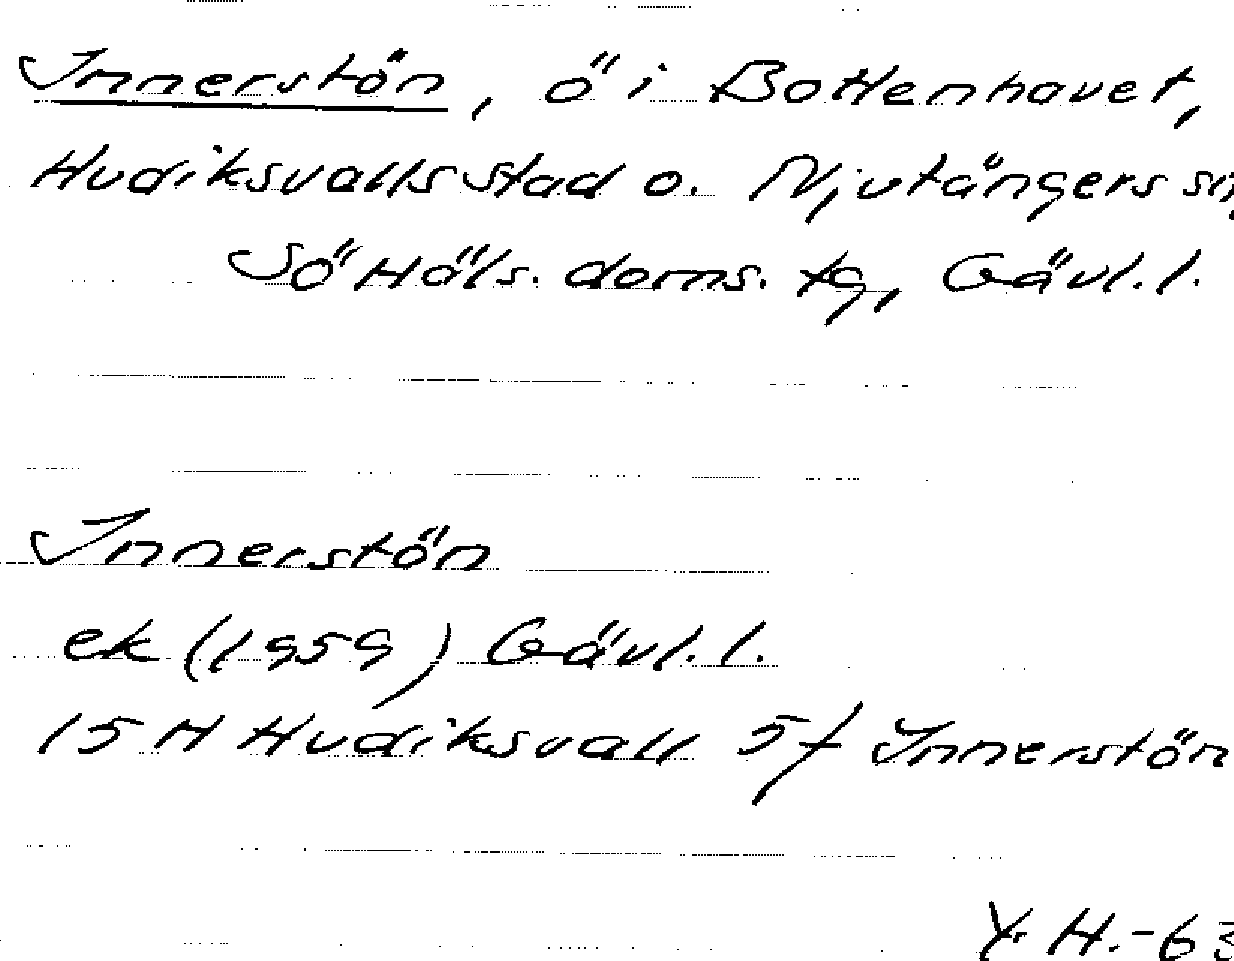 Innerstön, ö i Bottenhavet,
Hudiksvalls stad o. Njutångers sn,
Sö Häls. doms. tg, Gävl. l.
Innerstön
ek (1959) Gävl. l.
15 H Hudiksvall 5f Innerstön
Y. H. -63